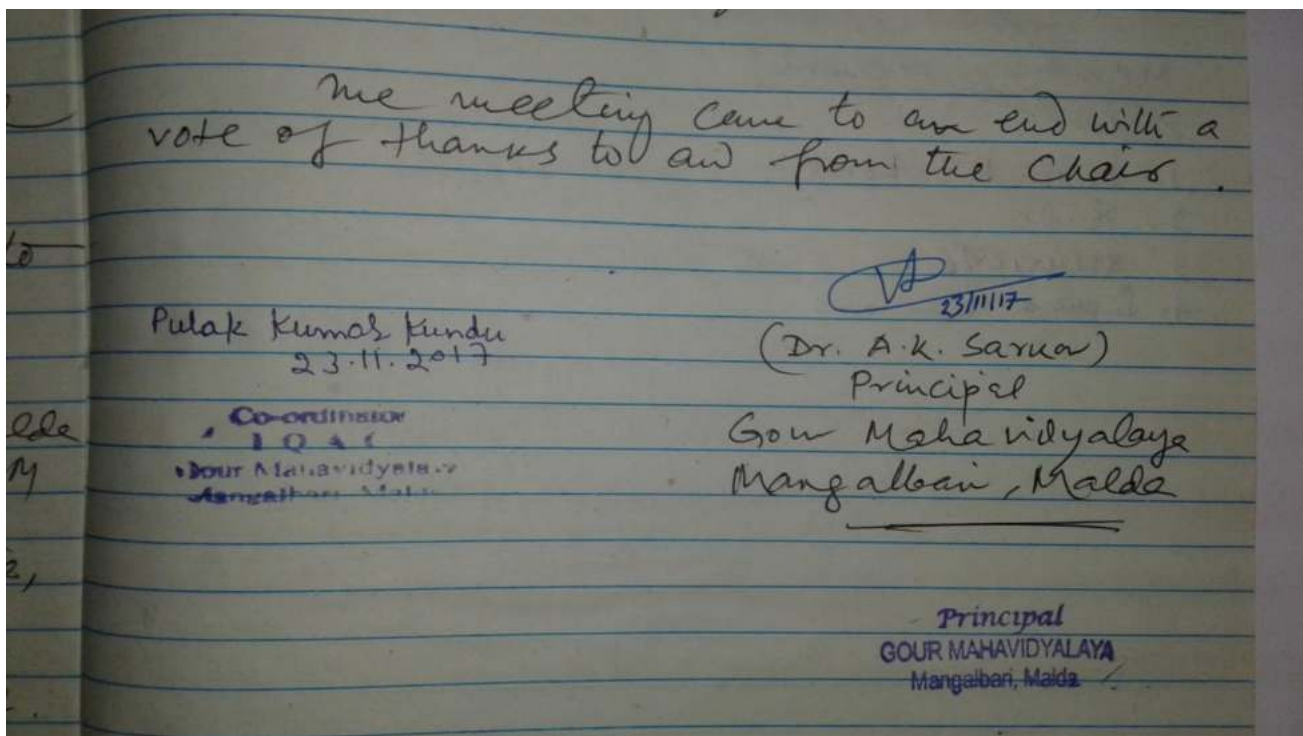 The meeting came to an end with a
vote of thanks to all from the Chair.
23/11/17
Pulak Kumar Kundu
23.11.2017
(Dr. A.K. Sarkar)
Principal
Gour Mahavidyalaya
Mangalbari, Malda
Co-ordinator
I Q A C
Gour Mahavidyalaya
Mangalbari, Malda
Principal
GOUR MAHAVIDYALAYA
Mangalbari, Malda